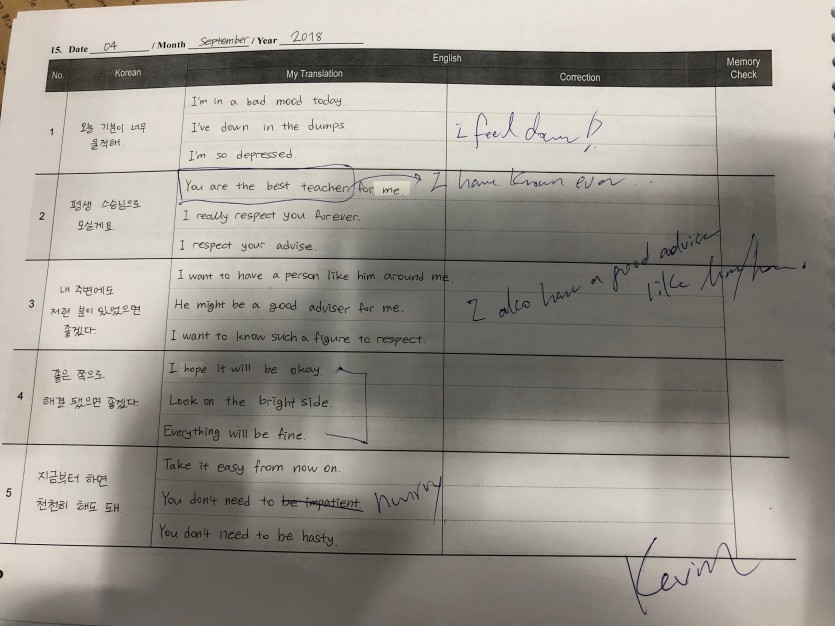 15. Date 04 / Month September / Year 2018
English
No. Korean My Translation Correction Memory Check
1 오늘 기분이 너무 울적해.
I'm in a bad mood today.
I've down in the dumps.
I'm so depressed.
I feel down!
2 평생 스승님으로 모실게요.
You are the best teacher for me. I have known ever ...
I really respect you forever.
I respect your advise.
3 내 주변에도 저런 분이 있었으면 좋겠다.
I want to have a person like him around me.
He might be a good adviser for me.
I want to know such a figure to respect.
I also have a good advice like
4 좋은 쪽으로 해결 됐으면 좋겠다.
I hope it will be okay.
Look on the bright side.
Everything will be fine.
5 지금부터 하면 천천히 해도 돼.
Take it easy from now on.
You don't need to be impatient. hurry
You don't need to be hasty.
Kevin